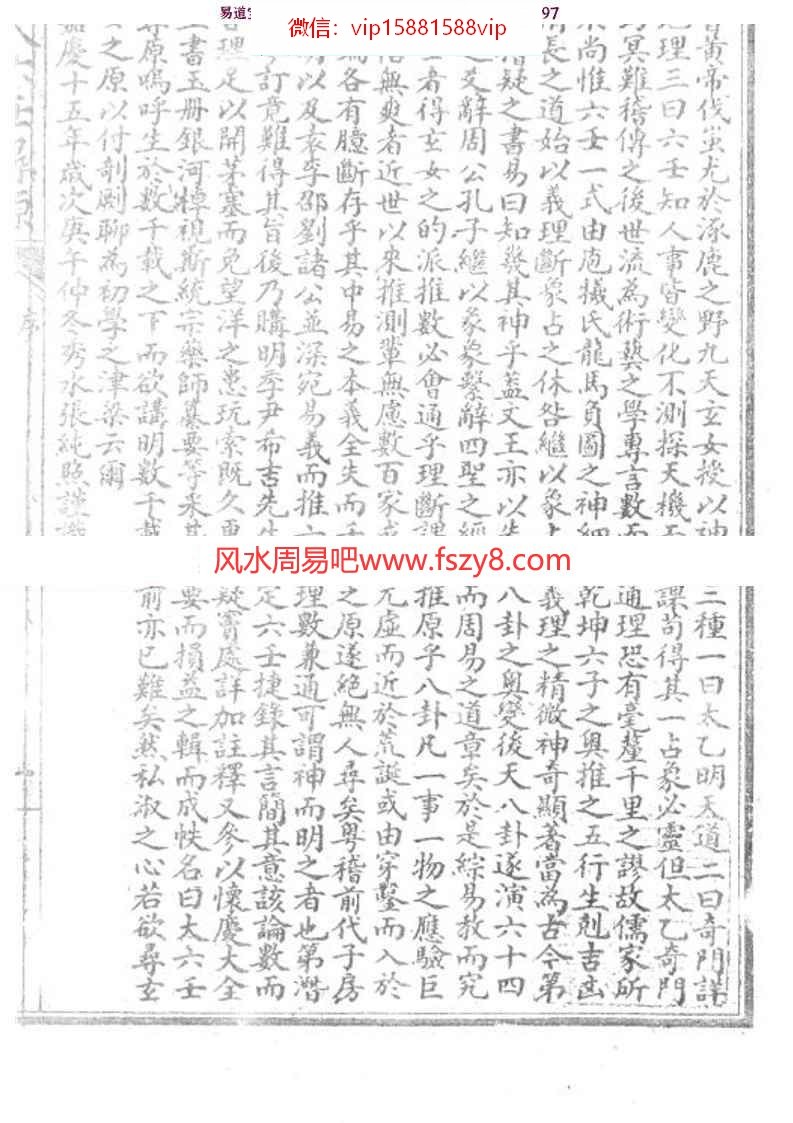 易道
97
微信：vip15881588vip
黃帝伐蚩尤於涿鹿之野九天玄女授以神三種一曰太乙明天道二曰奇門詳
地理三曰六壬知人事皆變化不測探天機課苟得其一占象必靈但太乙奇門
冥難稽傳之後世流為術藝之學專言數而通理恐有毫釐千里之謬故儒家所
不尚惟六壬一式由庖犧氏龍馬負圖之神細乾坤六子之奧推之五行生剋吉凶
消長之道始以義理斷象占之休咎繼以象占義理之精微神奇顯著當為古今第
潛疑之書易曰知幾其神乎蓋文王亦以先八卦之奧變後天八卦遂演六十四
之爻辭周公孔子繼以彖象繫辭四聖之經而周易之道章矣於是綜易教而究
壬者得玄女之的派推數必會通乎理斷課推原乎八卦凡一事一物之應驗巨
無爽者近世以來推測輩無慮數百家或尤虛而近於荒誕或由穿鑿而入於
各有臆斷存乎其中易之本義全失而壬之原遂絕無人尋矣粵稽前代子房
以及袁李邵劉諸公並深究易義而推六理數兼通可謂神而明之者也第潛
訂竟難得其旨後乃購明季尹希吉先生定六壬捷錄其言簡其意該論數而
理足以開茅塞而免望洋之患玩索既久更疑竇處詳加註釋又參以懷慶大全
書玉冊銀河棹視斯統宗藥師纂要等采其要而損益之輯而成帙名曰大六壬
尋原嗚呼生於數千載之下而欲講明數千載前亦已難矣然私淑之心若欲尋玄
之原以付剞劂聊為初學之津梁云爾
嘉慶十五年歲次庚午仲冬秀水張純照謹識
序
风水周易吧www.fszy8.com